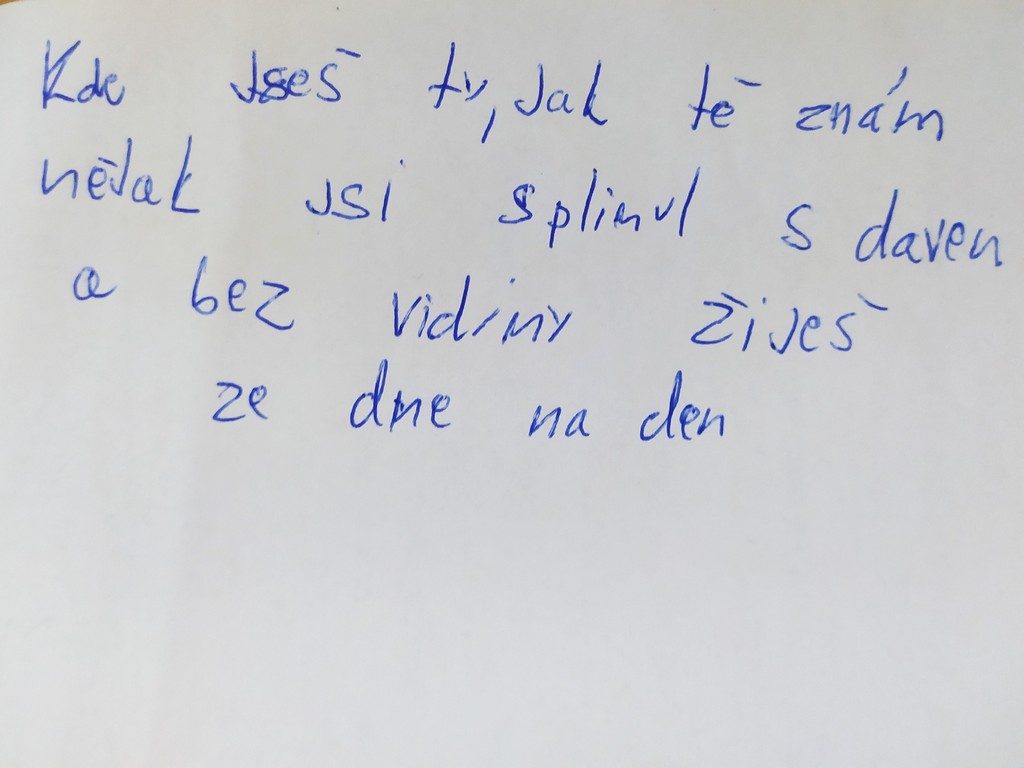 Kde jseš ty, jak tě znám
nějak jsi splinul s daven
a bez vidiny žiješ
ze dne na den